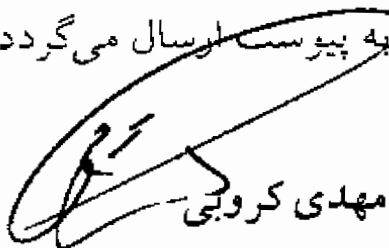 به پیوست ارسال می‌گردد
مهدی کروبی